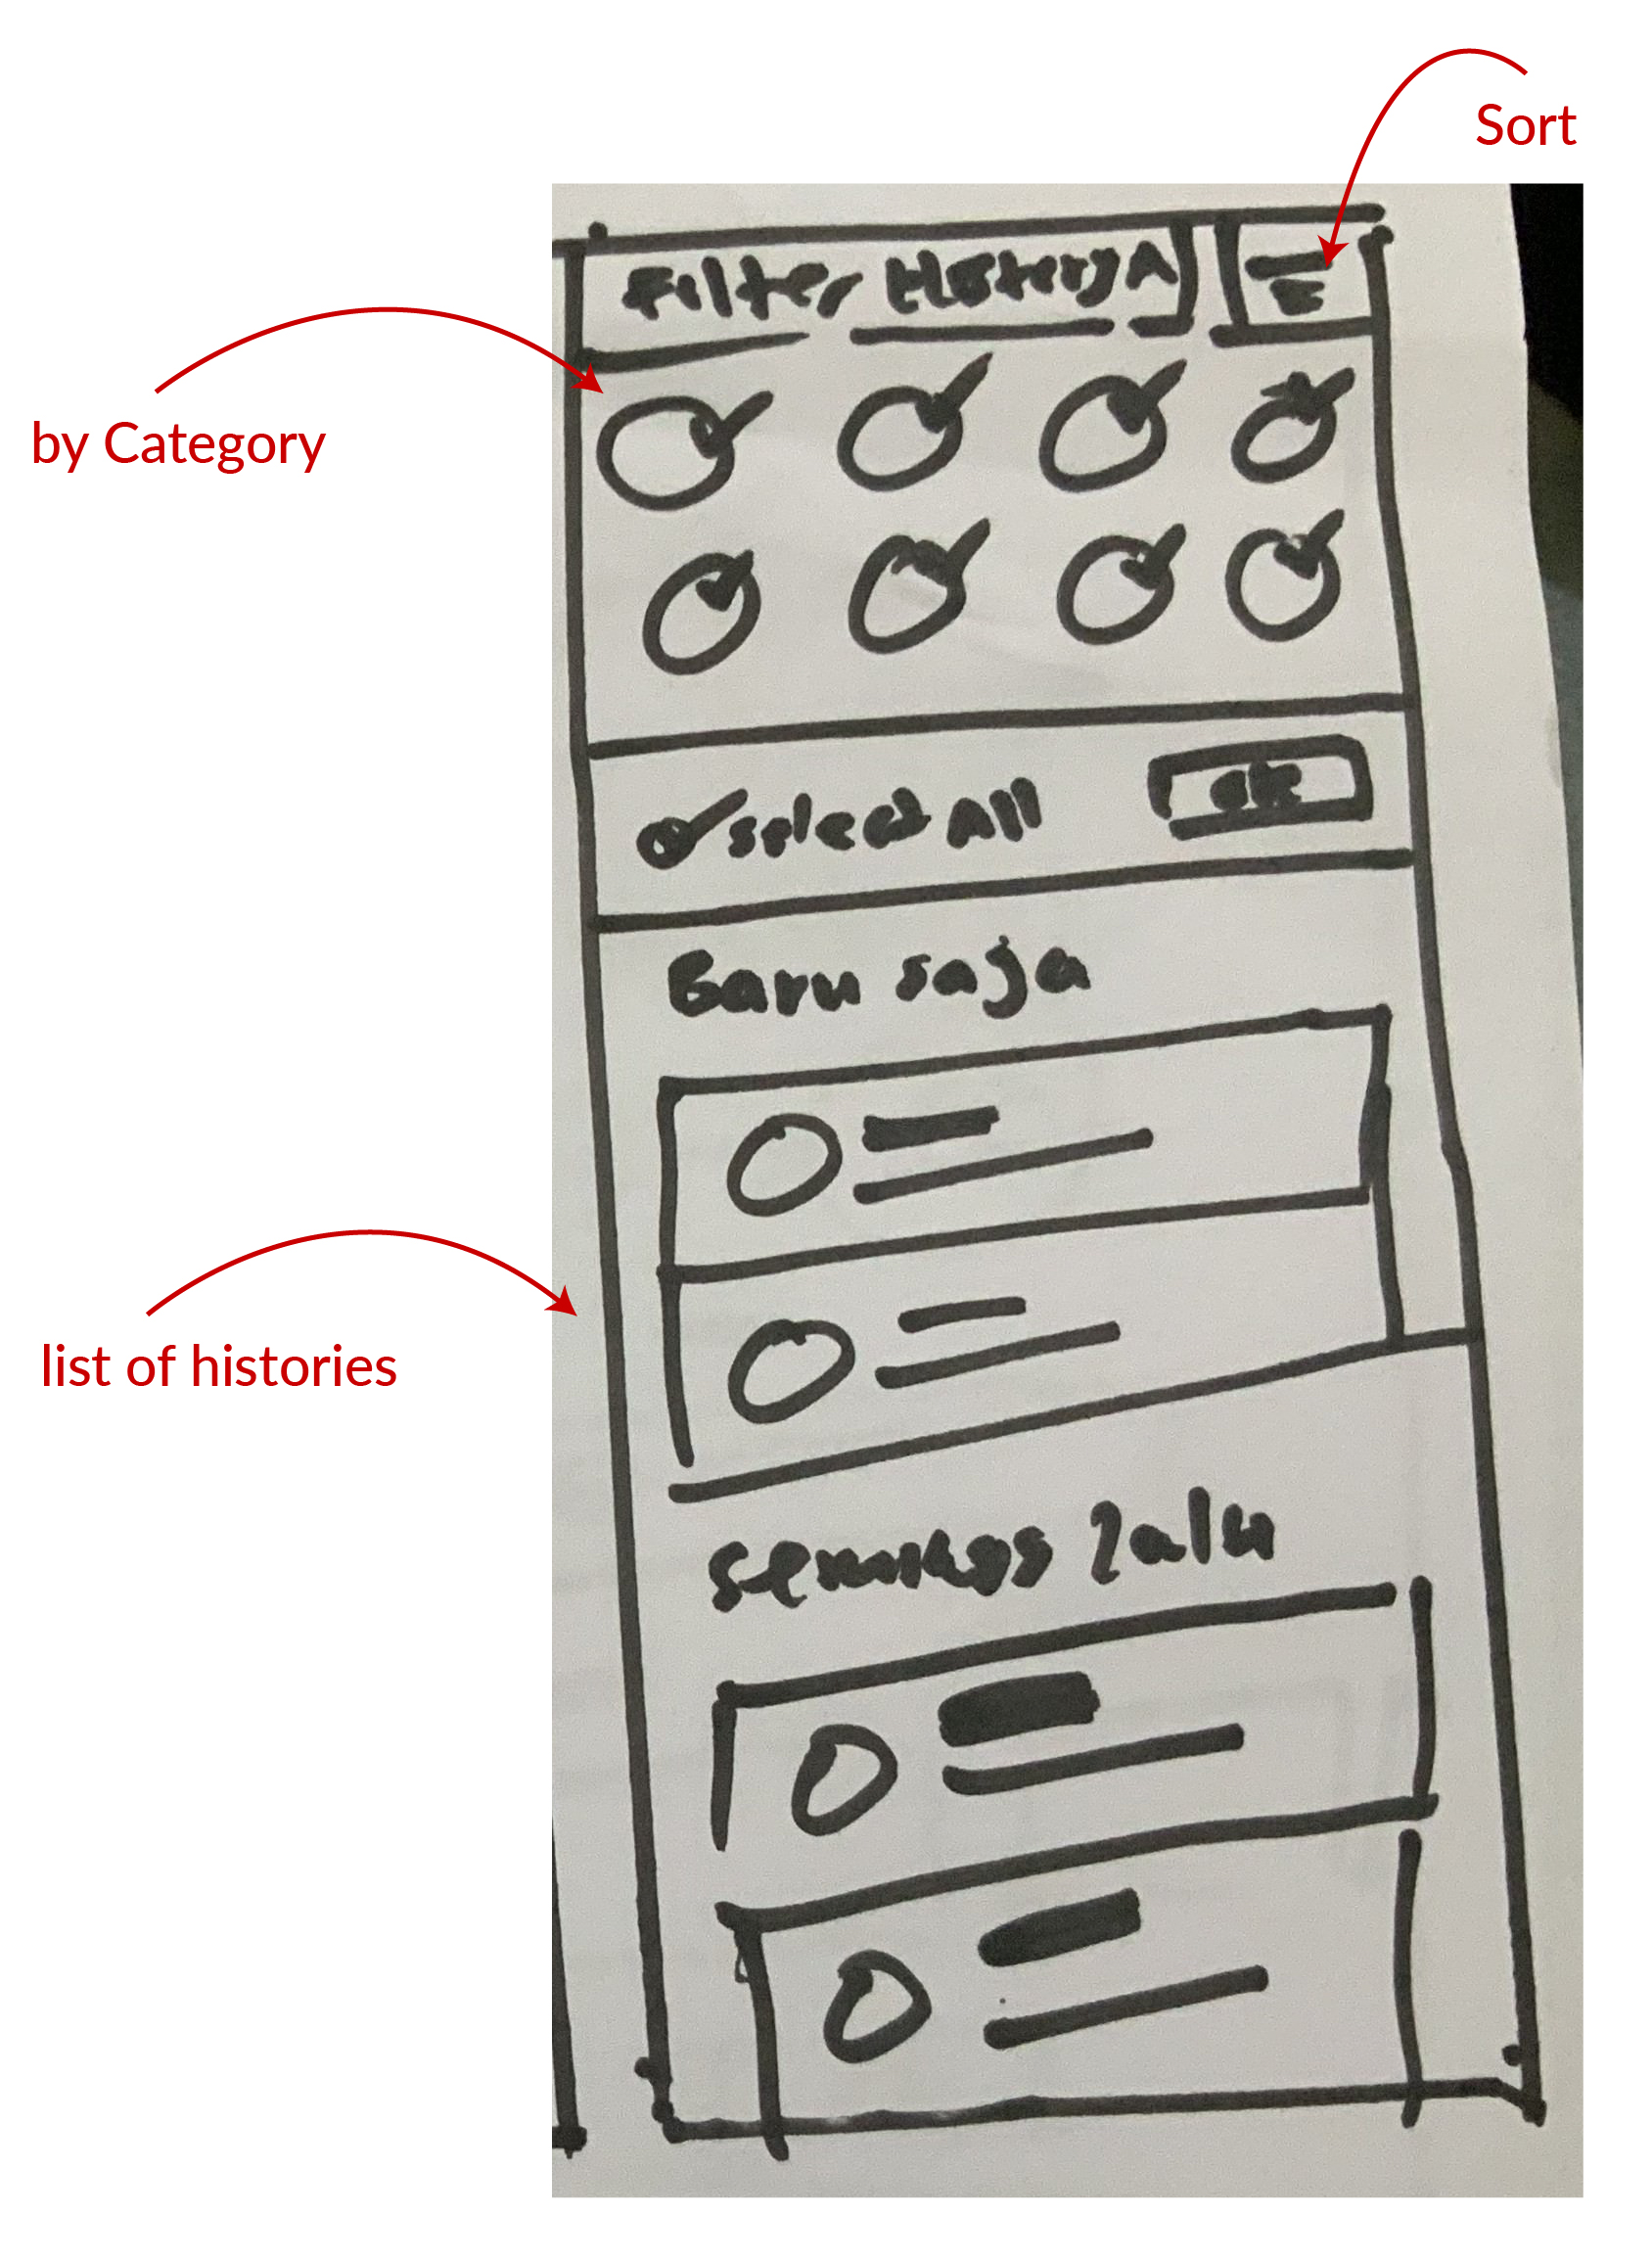 Sort
Filter History ^
by Category
select All
ok
Baru saja
list of histories
lalu